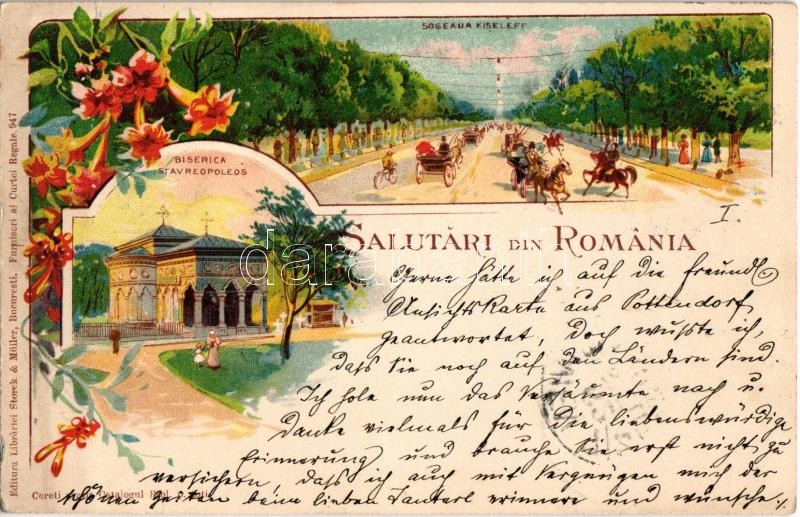 SOSEAUA KISELEFF
BISERICA
STAVREOPOLEOS
SALUTĂRI DIN ROMÂNIA
I.
Gerne hätte ich auf die freundl
Ansichtskarte aus Pottendorf
geantwortet, doch wußte ich,
daß Sie noch auf den Ländern sind.
Ich hole nun das Versäumte nach u.
danke vielmals für die liebenswürdige
Erinnerung und brauche Sie erst nicht zu
versichern, dass ich auch mit Vergnügen mich der
schönen Zeiten beim lieben Tanterl erinnere und wünsche
Editura Librăriei Storck & Müller, Bucuresti. Furnisori ai Curtei Regale. 947
Cereti Catalogul
darabanth